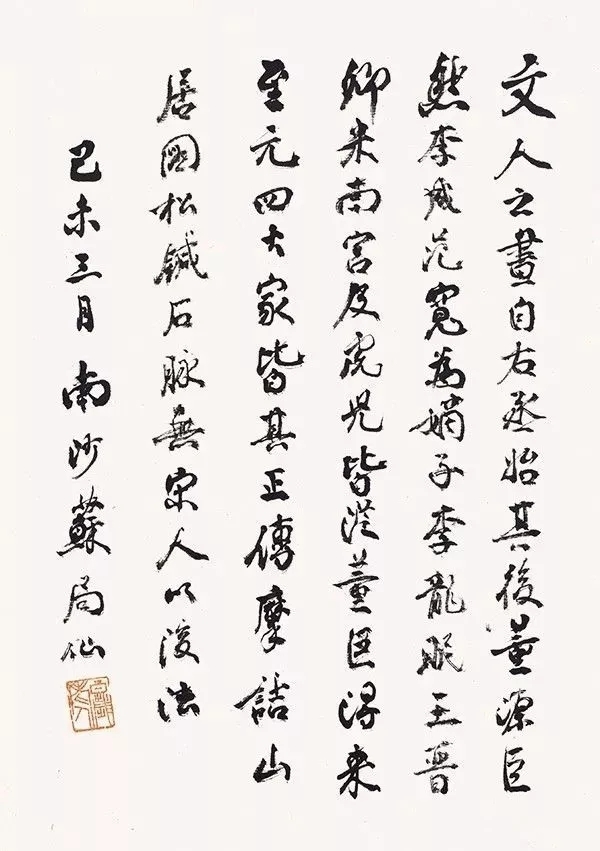 文人之畫自右丞始其後董源巨
然李成范寬為嫡子李龍眠王晉
卿米南宮及虎兒皆從董巨得來
至元四大家皆其正傳摩詰山
居圖松鍼石脈無宋人以後法
己未三月南沙蘇局仙